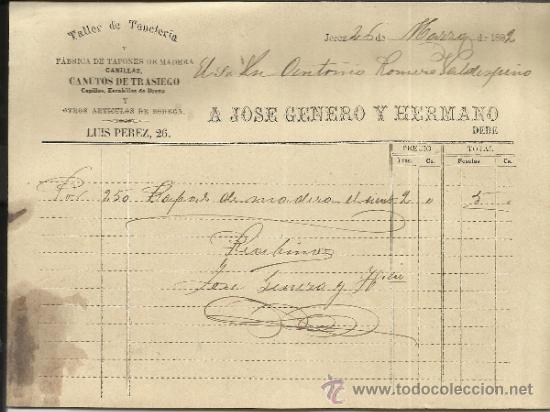 Taller de Toneleria
Y
FÁBRICA DE TAPONES DE MADERA
CANILLAS,
CANUTOS DE TRASIEGO
Capillos, Escobillas de Brezo
Y
OTROS ARTICULOS DE BODEGA.
LUIS PEREZ, 26.
Jerez 26 de Marzo de 1892
El Sr Dn Antonio Romero Valdespino
A JOSE GENERO Y HERMANO
DEBE
PRECIO TOTAL
Ptas. Cs. Pesetas Cs.
Por 250 Tapas de madera el 2 0 5
Recibimos
Jose Genero y Hno
www.todocoleccion.net